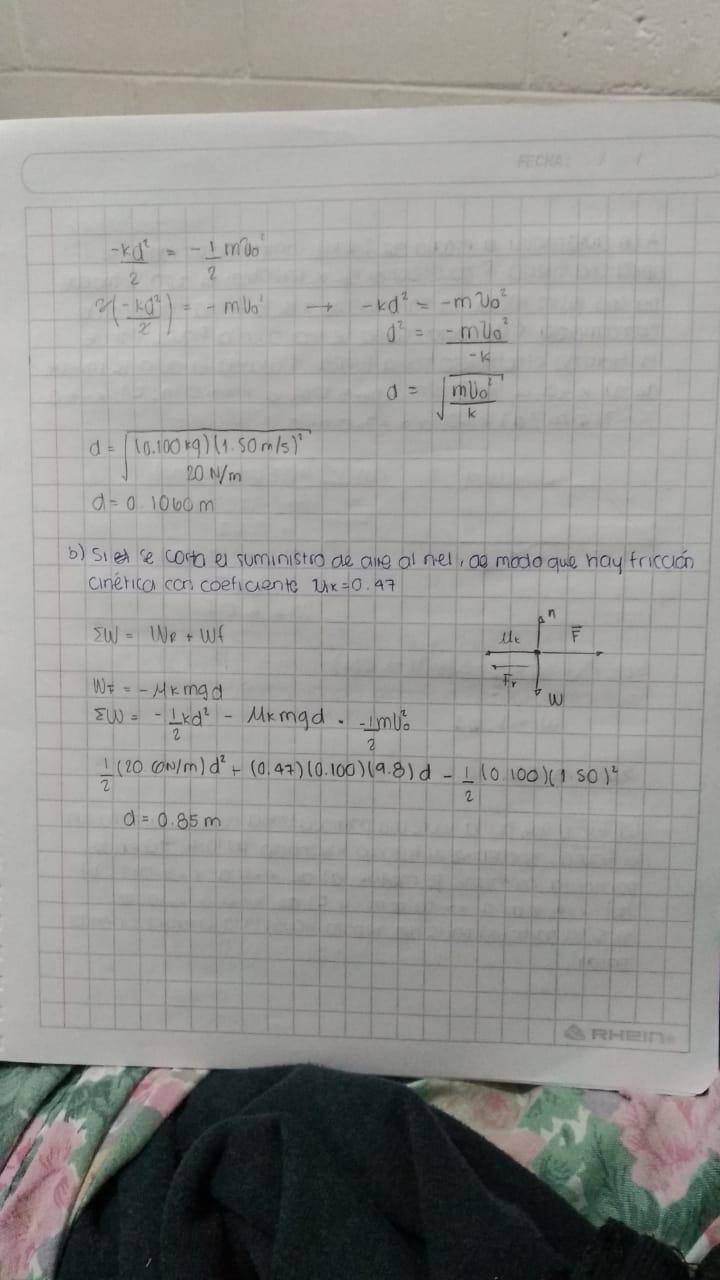 FECHA: / /
-kd²/2 = -1/2 mv₀²
2(-kd²/2) = - mv₀² → -kd² = -mv₀²
d² = -mv₀²/-k
d = √(mv₀²/k)
d = √((0.100kg)(1.50m/s)²/20 N/m)
d = 0.1060 m
b) Si se corta el suministro de aire al riel, de modo que hay fricción
cinética con coeficiente μk = 0.47
ΣW = WR + Wf
n
μk F
Fr
W
Wf = -μkmgd
ΣW = -1/2kd² - μkmgd = -1/2mv₀²
1/2(20.0N/m)d² + (0.47)(0.100)(9.8)d - 1/2(0.100)(1.50)²
d = 0.85m
RHEIN